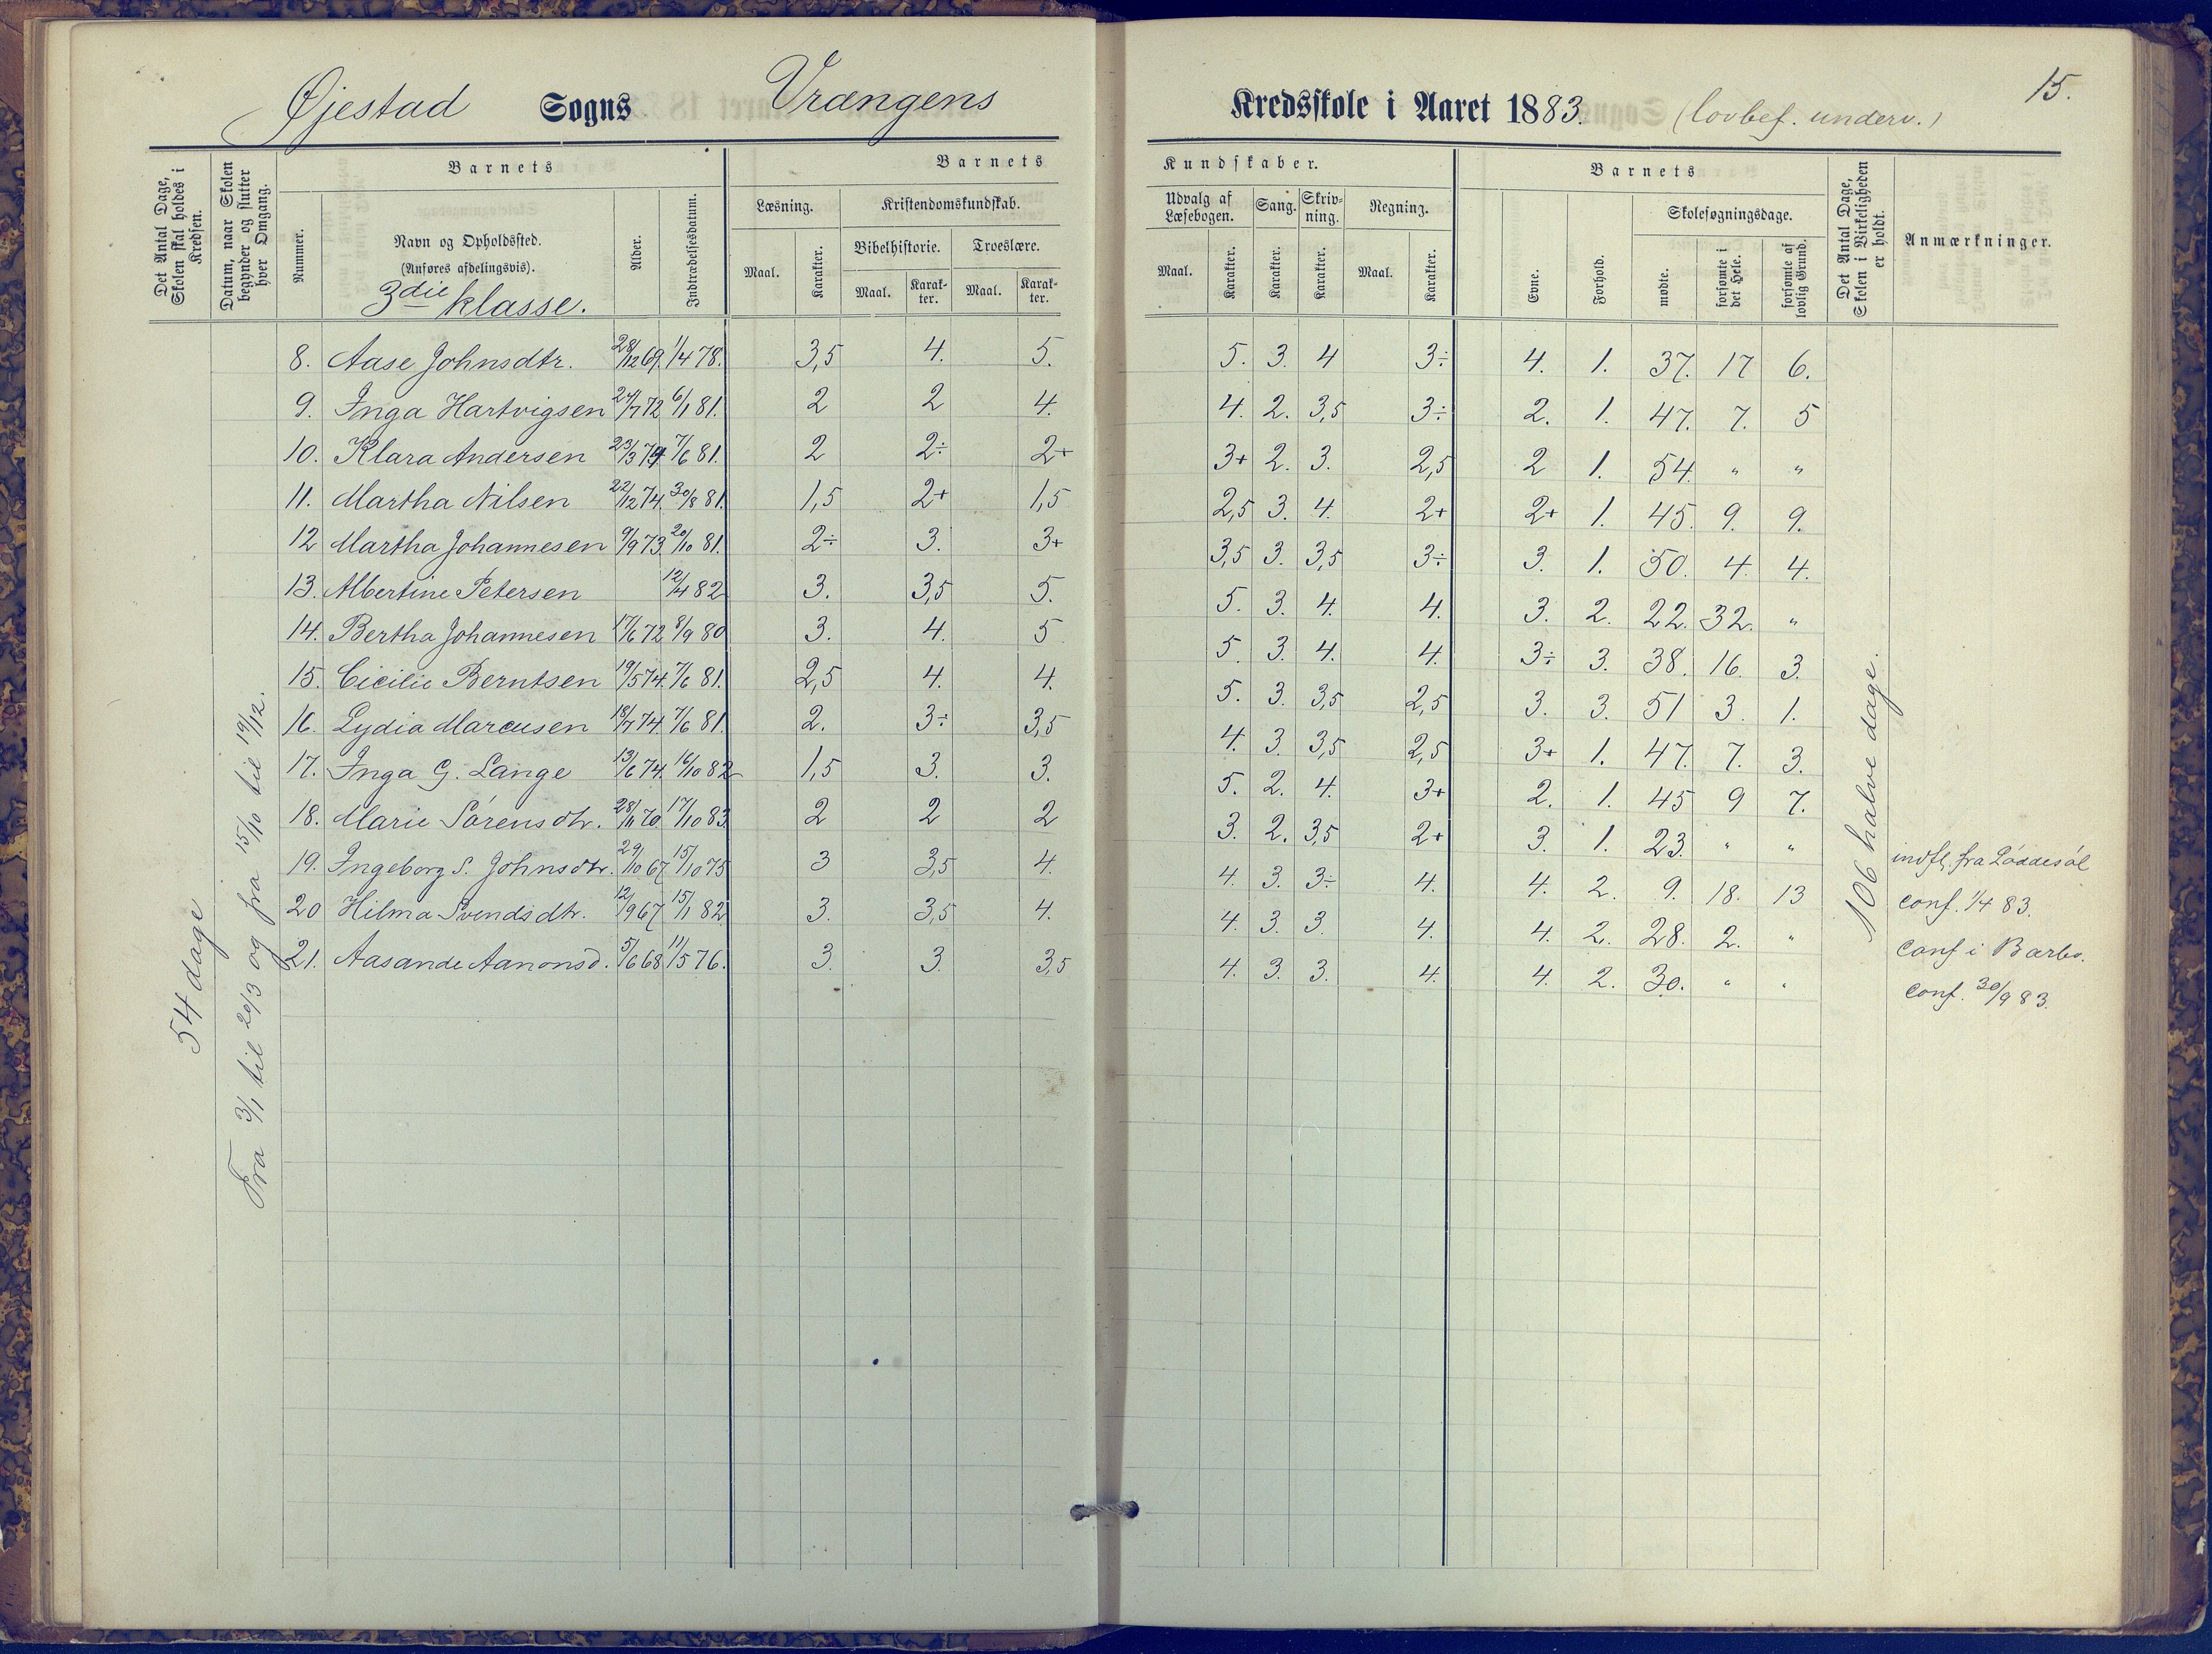 Øjestad Sogns Vrængens Kredsskole i Aaret 1883. (lovbef. underv.) 15.
Det Antal Dage, Skolen skal holdes i Kredsen.
Datum, naar Skolen begynder og slutter hver Omgang.
Barnets
Nummer.
Navn og Opholdssted.
(Anføres afdelingsvis).
3die klasse.
Alder.
Indtrædelsesdatum.
Barnets Kundskaber.
Læsning. Maal. Karakter.
Kristendomskundskab.
Bibelhistorie. Maal. Karakter.
Troeslære. Maal. Karakter.
Udvalg af Læsebogen. Maal. Karakter.
Sang. Karakter.
Skrivning. Karakter.
Regning. Maal. Karakter.
Barnets
Evne.
Forhold.
Skolesøgningsdage.
mødte.
forsømte i det Hele.
forsømte af lovlig Grund.
Det Antal Dage, Skolen i Virkeligheden er holdt.
Anmærkninger.
54 dage
Fra 3/1 til 20/3 og fra 15/10 til 19/12.
8. Aase Johnsdtr. 28/12 69. 1/4 78. 3,5 4. 5. 5. 3. 4 3÷ 4. 1. 37. 17 6.
9. Inga Hartvigsen 24/7 72 6/1 81. 2 2 4. 4. 2. 3,5 3÷ 2. 1. 47. 7. 5
10. Klara Andersen 23/3 74 7/6 81. 2 2÷ 2+ 3+ 2. 3. 2,5 2 1. 54. " "
11. Martha Nilsen 22/12 74. 30/8 81. 1,5 2+ 1,5 2,5 3. 4. 2+ 2+ 1. 45. 9. 9.
12 Martha Johannesen 9/9 73. 20/10 81. 2÷ 3. 3+ 3,5 3. 3,5 3÷ 3. 1. 50. 4. 4.
13. Albertine Petersen 12/4 82 3. 3,5 5. 5. 3. 4. 4. 3. 2. 22. 32. "
14. Bertha Johannesen 17/6 72 8/9 80 3. 4. 5 5. 3. 4. 4. 3÷ 3. 38. 16. 3.
15. Cicilie Berntsen 19/5 74. 7/6 81. 2,5 4. 4. 5. 3. 3,5 2,5 3. 3. 51 3. 1.
16. Lydia Marcusen 18/7 74. 7/6 81. 2. 3÷ 3,5 4. 3. 3,5 2,5 3+ 1. 47. 7. 3.
17. Inga G. Lange 13/6 74. 16/10 82 1,5 3. 3. 5. 2. 4. 3+ 2. 1. 45 9 7.
18. Marie Sørensdtr. 28/11 70. 17/10 83. 2 2 2 3. 2. 3,5 2+ 3. 1. 23. " " indfl. fra Løddesøl
19. Ingeborg S. Johnsdtr. 29/10 67. 15/10 75 3 3,5 4. 4. 3. 3÷ 4. 4. 2. 9. 18. 13 conf. 1/4 83.
20 Hilma Svendsdtr. 12/9 67 15/1 82. 3. 3,5 4. 4. 3. 3. 4. 4. 2. 28. 2. " conf i Barbo.
21. Aasande Aanonsd. 5/6 68 11/5 76. 3. 3. 3,5 4. 3. 3. 4. 4. 2. 30. " " conf. 30/9 83.
106 halve dage.